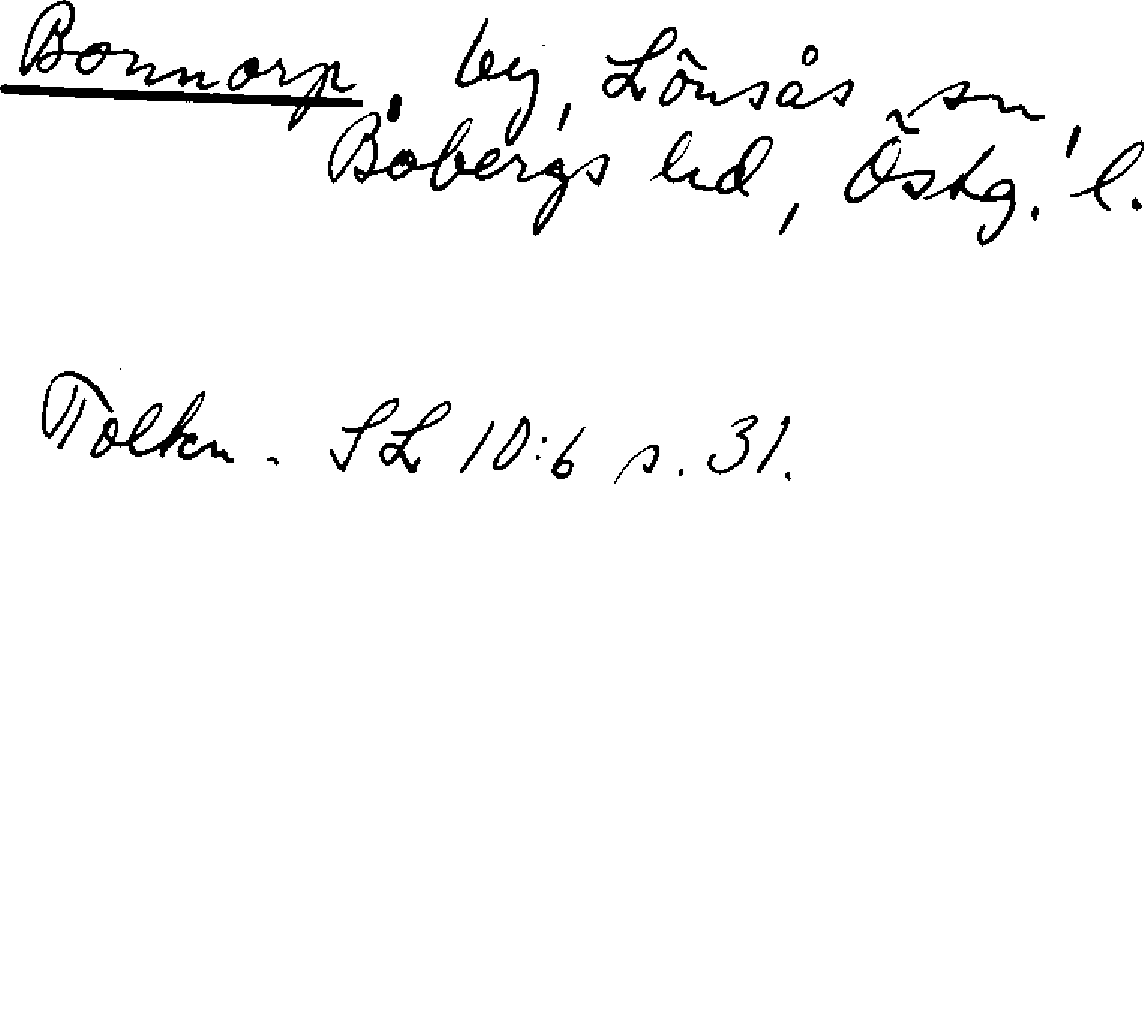 Bonnorp, by, Lönsås sn,
Bobergs hd, Östg. l.
Tolkn. SL 10:6 s. 31.